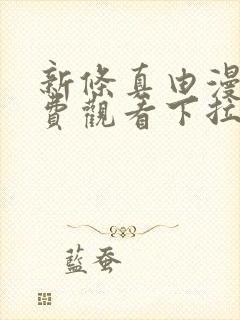 新條真由漫
費觀看下拉
藍蚕